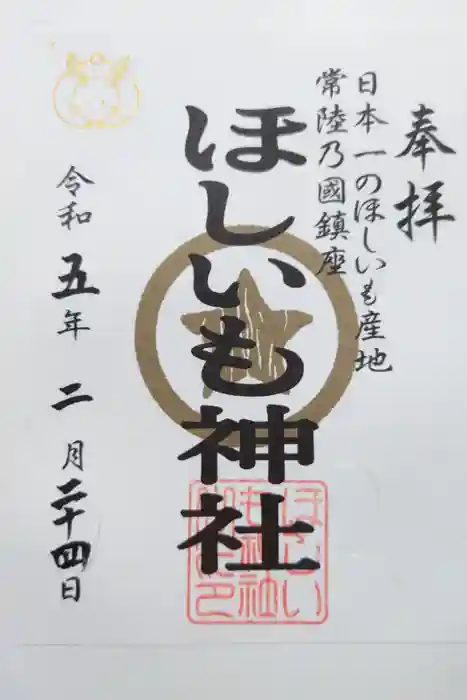 奉拝
日本一のほしいも産地
常陸乃國鎮座
ほしいも神社
令和五年二月二十四日
ほしい
も神社